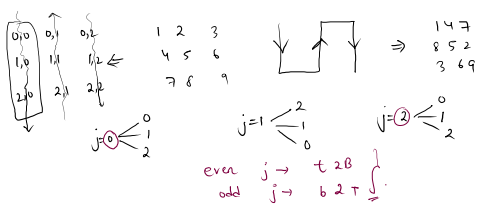 0,0 0,1 0,2
1,0 1,1 1,2
2,0 2,1 2,2
1 2 3
4 5 6
7 8 9
⇒
1 4 7
8 5 2
3 6 9
j=0
0
1
2
j=1
2
1
0
j=2
0
1
2
even j → t 2B
odd j → b 2 T